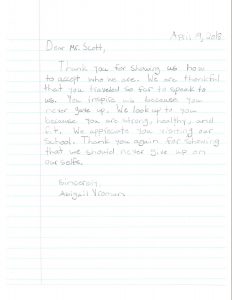 April 9, 2018
Dear Mr. Scott,
Thank you for showing us how
to accept who we are. We are thankful
that you traveled so far to speak to
us. You inspire us because you
never gave up. We look up to you
because you are strong, healthy, and
fit. We appreciate you visiting our
school. Thank you again for showing
that we should never give up on
our selfs.
Sincerely,
Abigail Vroman